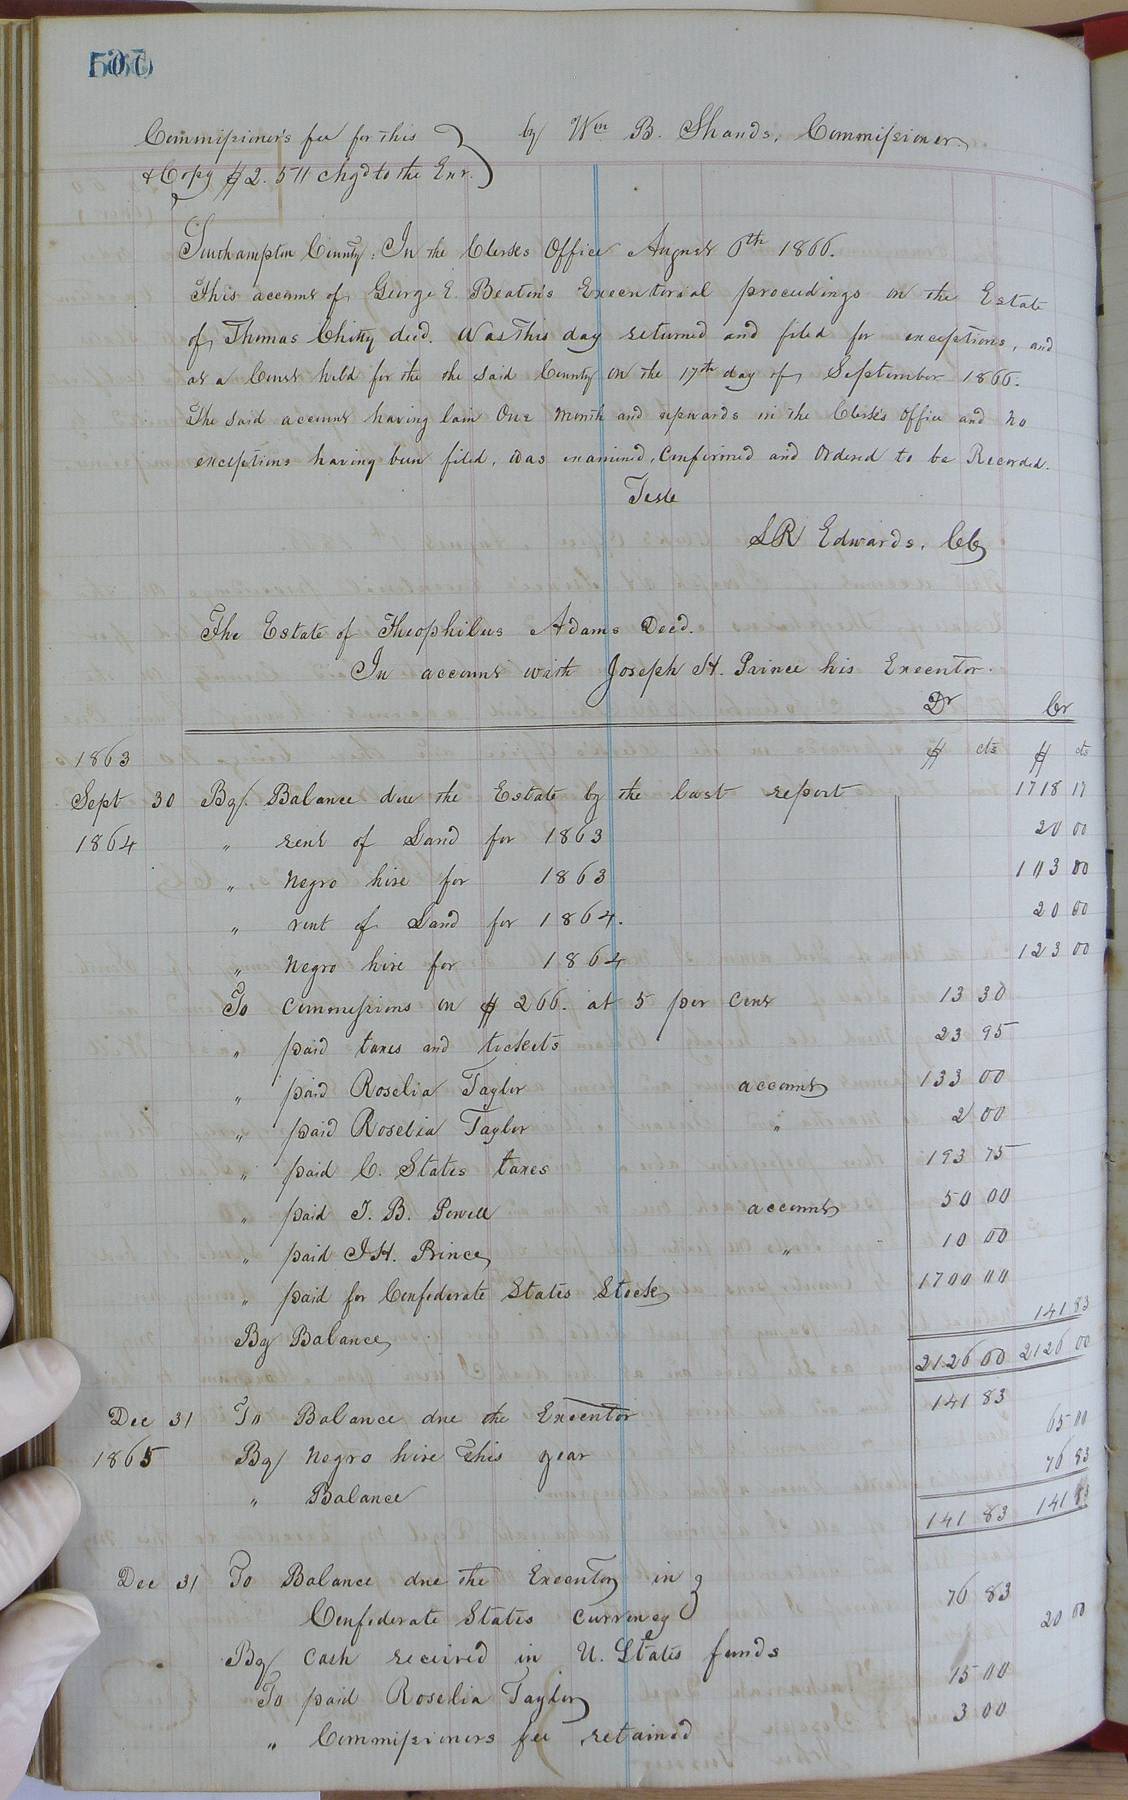 Commissioner's fee for this by Wm B. Shands, Commissioner
& Copy $2.50 chgd to the Exr.
Southampton County: In the Clerk's Office August 6th 1866.
This account of George E. Beaton's Executorial proceedings on the Estate
of Thomas Chitty decd. was this day returned and filed for exceptions, and
at a Court held for the the said County on the 17th day of September 1866.
The said account having lain One month and upwards in the Clerk's office and no
exceptions having been filed, was examined, Confirmed and Ordered to be Recorded.
Teste
LR Edwards, CC
The Estate of Theophilus Adams Decd.
In account with Joseph H. Prince his Executor.
Dr Cr
1863 $ cts $ cts
Sept 30 By Balance due the Estate by the last report 1718 17
1864 " rent of Land for 1863 20 00
" Negro hire for 1863 103 00
" rent of Land for 1864. 20 00
" Negro hire for 1864 123 00
To Commissions on $266. at 5 per cent 13 30
" paid taxes and tickets 23 95
" paid Roselia Taylor account 133 00
" paid Roselia Taylor " 2 00
" paid C. States taxes 193 75
" paid J. B. Powell account 50 00
" paid J H. Prince " 10 00
" paid for Confederate States Stock 1700 00
By Balance 141 83
2126 00 2126 00
Dec 31 To Balance due the Executor 141 83
1865 By Negro hire this year 65 00
" Balance 76 83
141 83 141 83
Dec 31 To Balance due the Executor in
Confederate States currency 76 83
By Cash received in U. States funds 20 00
To paid Roselia Taylor 15 00
" Commissioners fee retained 3 00